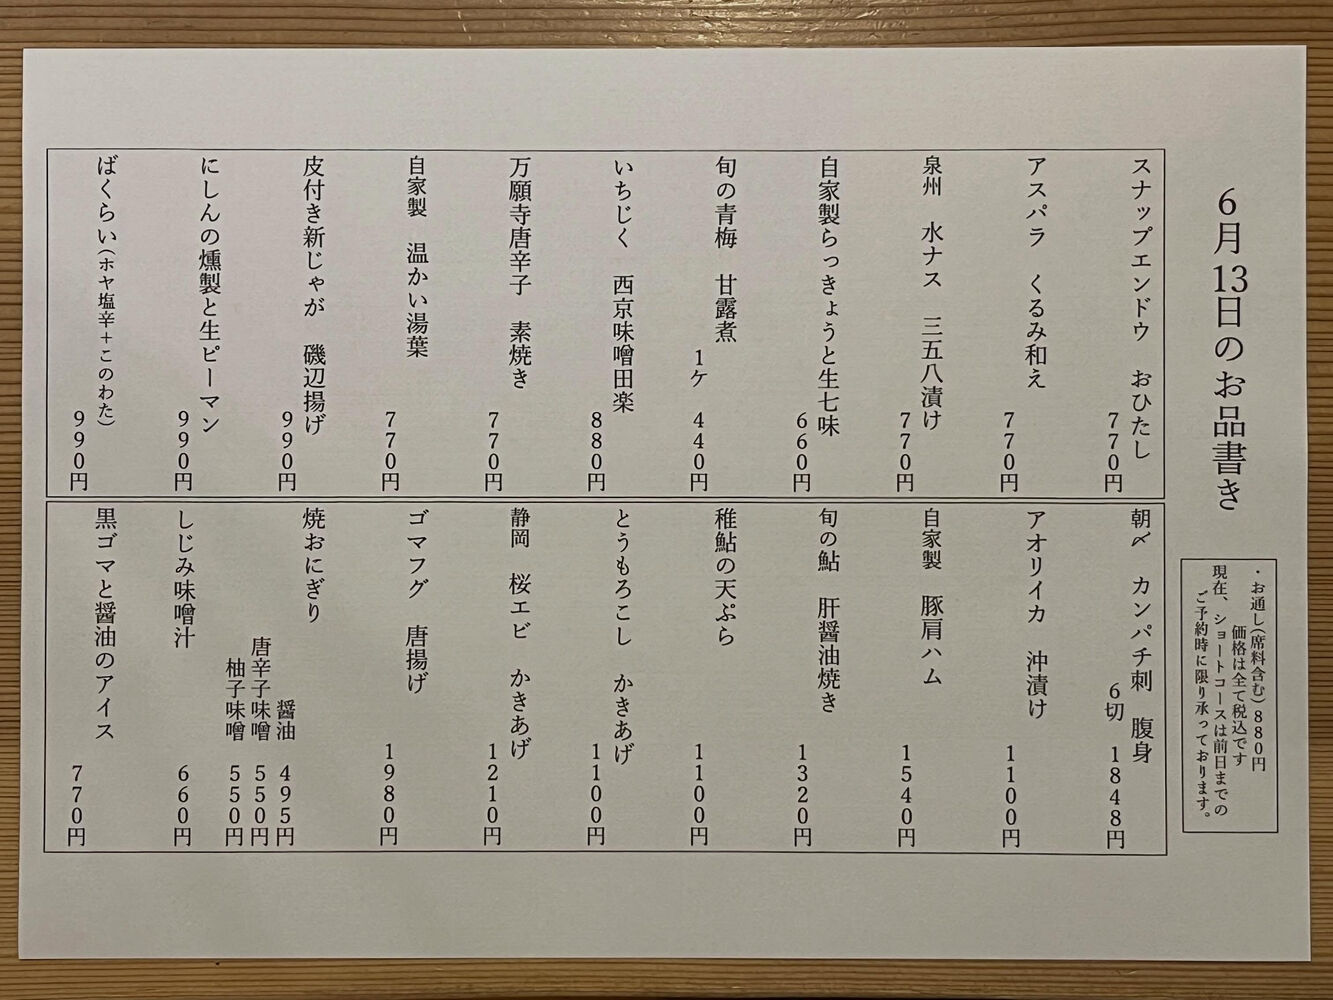 6月13日のお品書き
・お通し(席料含む)880円
価格は全て税込です
現在、ショートコースは前日までの
ご予約時に限り承っております。
スナップエンドウ　おひたし
770円
アスパラ　くるみ和え
770円
泉州　水ナス　三五八漬け
770円
自家製らっきょうと生七味
660円
旬の青梅　甘露煮
1ケ　440円
いちじく　西京味噌田楽
880円
万願寺唐辛子　素焼き
770円
自家製　温かい湯葉
770円
皮付き新じゃが　磯辺揚げ
990円
にしんの燻製と生ピーマン
990円
ばくらい(ホヤ塩辛+このわた)
990円
朝〆　カンパチ刺　腹身
6切　1848円
アオリイカ　沖漬け
1100円
自家製　豚肩ハム
1540円
旬の鮎　肝醤油焼き
1320円
稚鮎の天ぷら
1100円
とうもろこし　かきあげ
1100円
静岡　桜エビ　かきあげ
1210円
ゴマフグ　唐揚げ
1980円
焼おにぎり
醤油　495円
唐辛子味噌　550円
柚子味噌　550円
しじみ味噌汁
660円
黒ゴマと醤油のアイス
770円